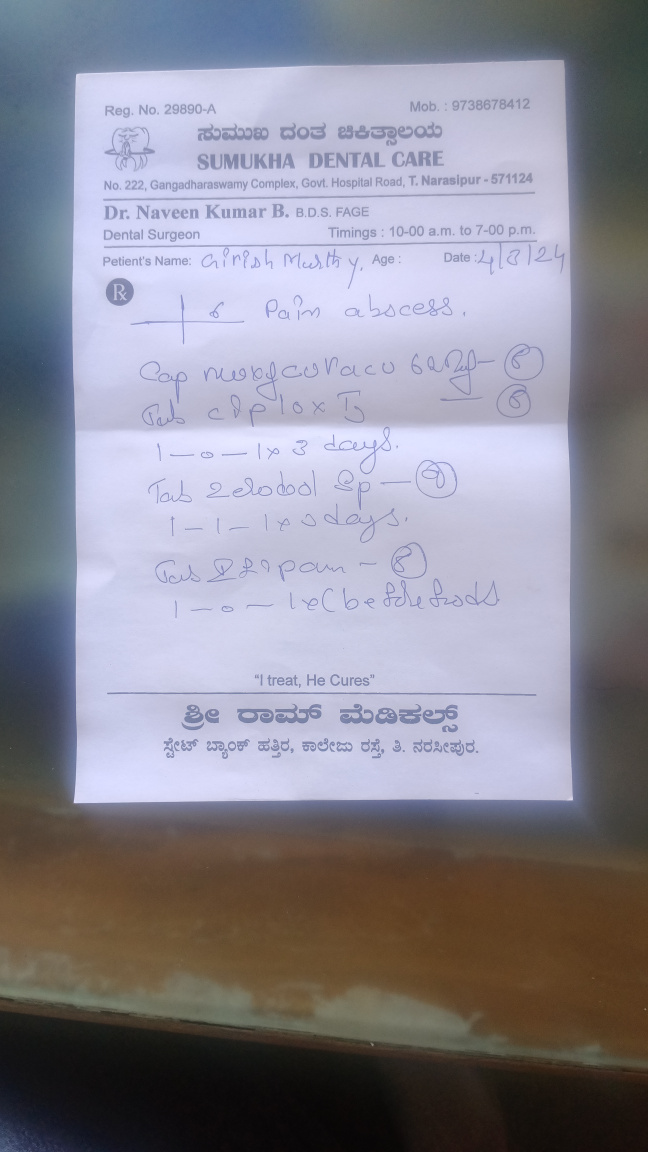 Reg. No. 29890-A Mob. : 9738678412
ಸುಮುಖ ದಂತ ಚಿಕಿತ್ಸಾಲಯ
SUMUKHA DENTAL CARE
No. 222, Gangadharaswamy Complex, Govt. Hospital Road, T. Narasipur - 571124
Dr. Naveen Kumar B. B.D.S. FAGE
Dental Surgeon Timings : 10-00 a.m. to 7-00 p.m.
Petient's Name: Girish Murthy. Age : Date : 4/3/24
Rx
6 Pain abscess.
Cap
Tab
1-0-1x 3 days.
Tab Zerodol Sp - 9
1-1-1x 3 days.
Tab
1-0-1x (before food)
"I treat, He Cures"
ಶ್ರೀ ರಾಮ್ ಮೆಡಿಕಲ್ಸ್
ಸ್ಟೇಟ್ ಬ್ಯಾಂಕ್ ಹತ್ತಿರ, ಕಾಲೇಜು ರಸ್ತೆ, ತಿ. ನರಸೀಪುರ.